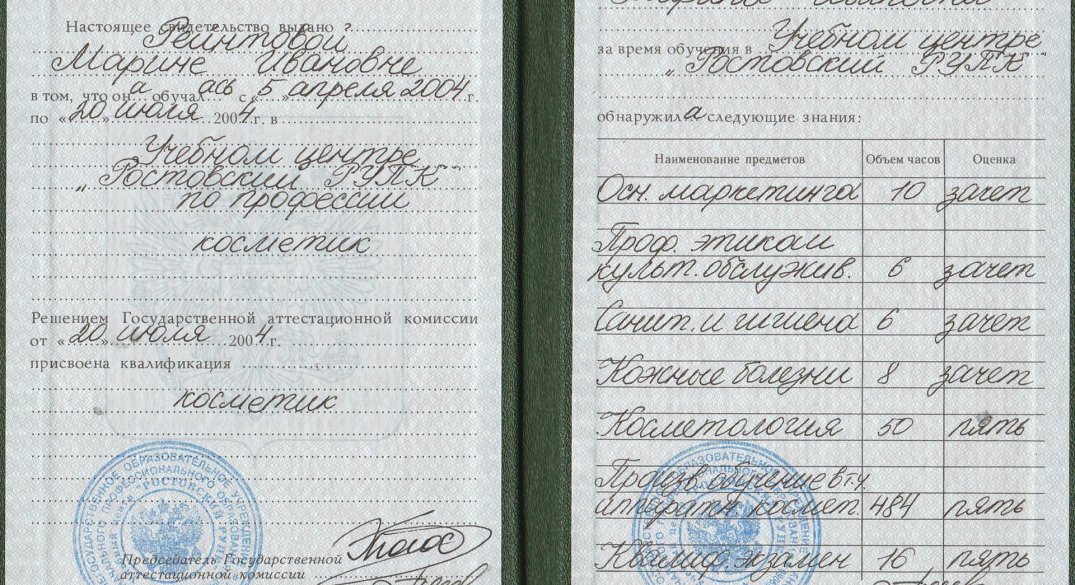 Настоящее свидетельство выдано
Рейнтовой
Марине Ивановне
в том, что он а обучал ась с «5» апреля 2004 г.
по «20» июля 2004 г. в
Учебном центре
„Ростовский РУПК"
по профессии
косметик
Решением Государственной аттестационной комиссии
от «20» июля 2004 г.
присвоена квалификация
косметик
Председатель Государственной
аттестационной комиссии
за время обучения в Учебном центре
„Ростовский РУПК"
обнаружил а следующие знания:
Наименование предметов Объем часов Оценка
Осн. маркетинга 10 зачет
Проф. этика и
культ. обслужив. 6 зачет
Санит. и гигиена 6 зачет
Кожные болезни 8 зачет
Косметология 50 пять
Произв. обучение в т.ч.
аппаратн. космет. 484 пять
Квалиф. экзамен 16 пять